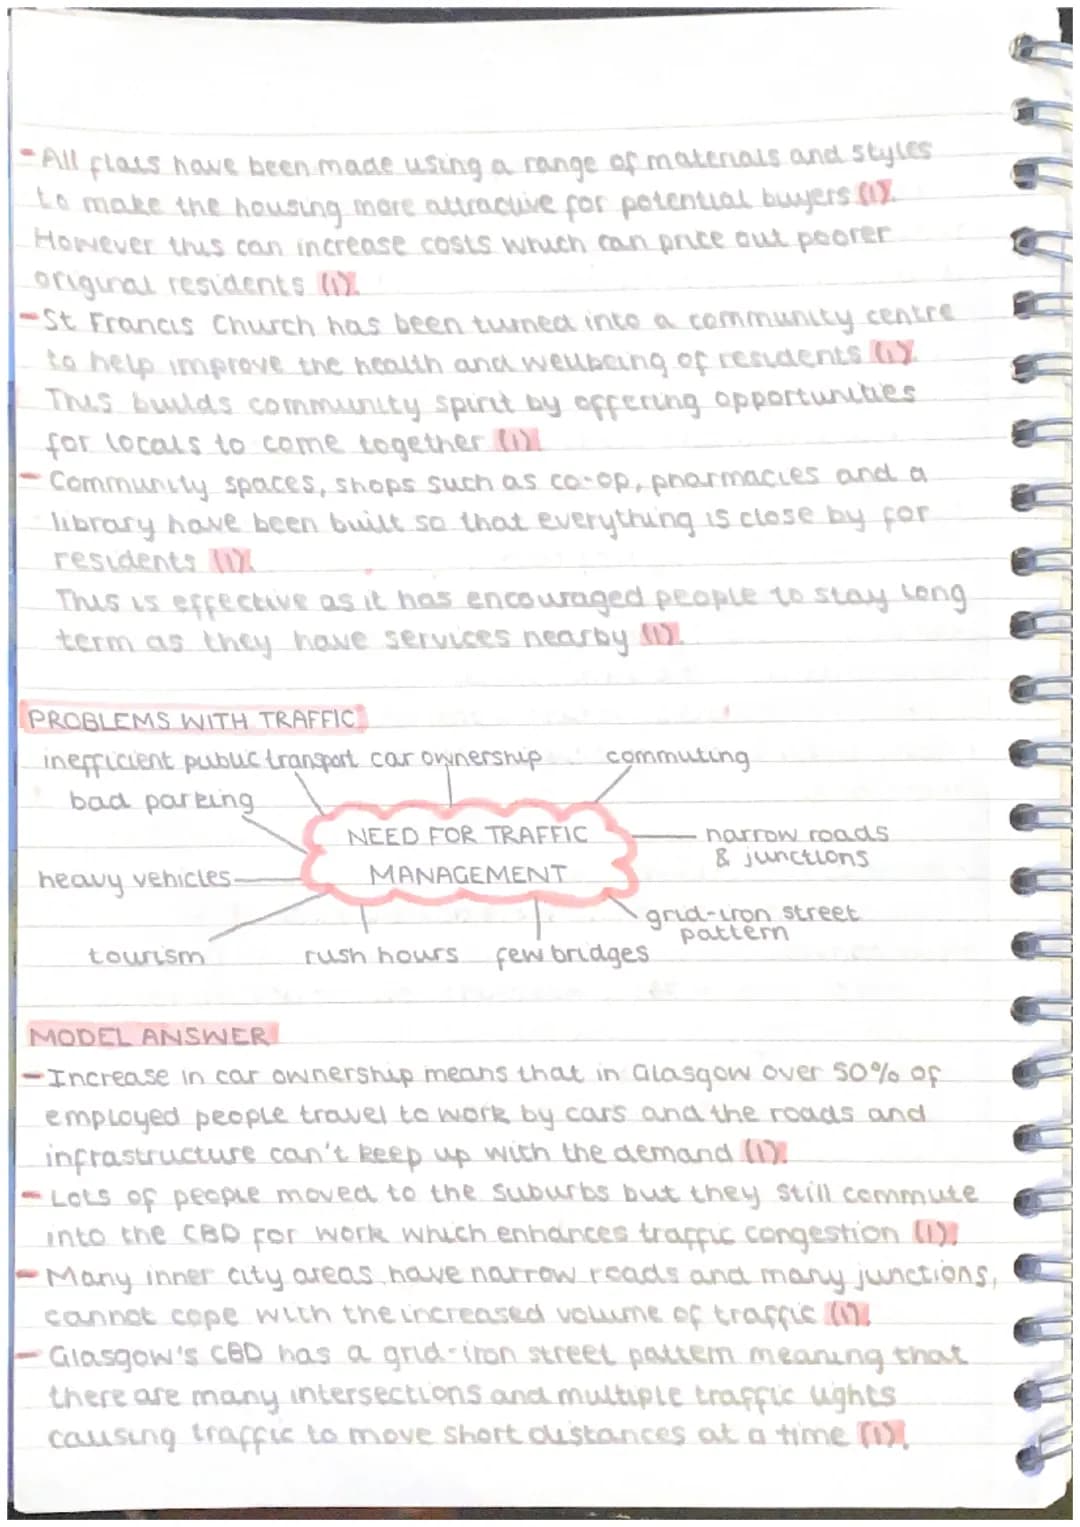 - All flats have been made using a range of materials and styles
to make the housing more attractive for potential buyers (1).
However this can increase costs which can price out poorer
original residents (1).
- St Francis Church has been turned into a community centre
to help improve the health and wellbeing of residents (1).
This builds community spirit by offering opportunities
for locals to come together (1)
- Community spaces, shops such as co-op, pharmacies and a
library have been built so that everything is close by for
residents (1).
This is effective as it has encouraged people to stay long
term as they have services nearby (1).
PROBLEMS WITH TRAFFIC
inefficient public transport car ownership commuting
bad parking
NEED FOR TRAFFIC
MANAGEMENT
narrow roads
& junctions
heavy vehicles
grid-iron street
pattern
tourism rush hours few bridges
MODEL ANSWER
- Increase in car ownership means that in Glasgow over 50% of
employed people travel to work by cars and the roads and
infrastructure can't keep up with the demand (1).
- Lots of people moved to the suburbs but they still commute
into the CBD for work which enhances traffic congestion (1).
- Many inner city areas have narrow roads and many junctions,
cannot cope with the increased volume of traffic (1).
- Glasgow's CBD has a grid-iron street pattern meaning that
there are many intersections and multiple traffic lights
causing traffic to move short distances at a time (1).